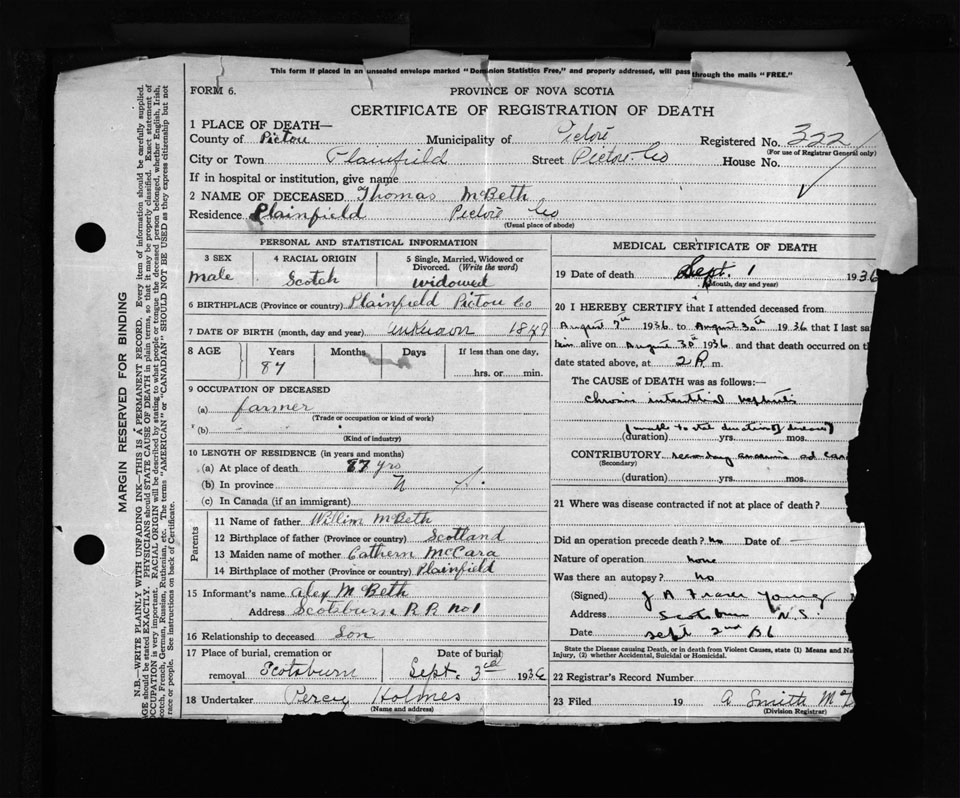 This form if placed in an unsealed envelope marked "Dominion Statistics Free," and properly addressed, will pass through the mails "FREE."
FORM 6. PROVINCE OF NOVA SCOTIA
CERTIFICATE OF REGISTRATION OF DEATH
1 PLACE OF DEATH—
County of Pictou Municipality of Pictou Registered No. 322
(For use of Registrar General only)
City or Town Plainfield Street Pictou Co House No.
If in hospital or institution, give name
2 NAME OF DECEASED Thomas McBeth
Residence Plainfield Pictou Co
(Usual place of abode)
PERSONAL AND STATISTICAL INFORMATION
3 SEX 4 RACIAL ORIGIN 5 Single, Married, Widowed or Divorced. (Write the word)
male Scotch widowed
6 BIRTHPLACE (Province or country) Plainfield Pictou Co
7 DATE OF BIRTH (month, day and year) unknown 1849
8 AGE Years Months Days If less than one day,
87 hrs. or min.
9 OCCUPATION OF DECEASED
(a) farmer
(Trade or occupation or kind of work)
(b)
(Kind of industry)
10 LENGTH OF RESIDENCE (in years and months)
(a) At place of death 87 yrs
(b) In province "
(c) In Canada (if an immigrant)
Parents
11 Name of father Willim McBeth
12 Birthplace of father (Province or country) Scotland
13 Maiden name of mother Cathern McCara
14 Birthplace of mother (Province or country) Plainfield
15 Informant's name Alex McBeth
Address Scotsburn R.R. No 1
16 Relationship to deceased Son
17 Place of burial, cremation or removal Date of burial
Scotsburn Sept. 3rd 1936
18 Undertaker Percy Holmes
(Name and address)
MEDICAL CERTIFICATE OF DEATH
19 Date of death Sept. 1 1936
(Month, day and year)
20 I HEREBY CERTIFY that I attended deceased from
August 7th 1936 to August 30th 1936 that I last sa
him alive on August 30th 1936 and that death occurred on th
date stated above, at 2 P. m.
The CAUSE OF DEATH was as follows:—
chronic interstitial nephritis
(unable to state duration of disease)
(duration) yrs. mos.
CONTRIBUTORY secondary anaemia
(Secondary)
(duration) yrs. mos.
21 Where was disease contracted if not at place of death?
Did an operation precede death? No Date of —
Nature of operation none
Was there an autopsy? no
(Signed) J A Fraser Young
Address Scotsburn N.S.
Date Sept 2nd 36
State the Disease causing Death, or in death from Violent Causes, state (1) Means and Na
Injury, (2) whether Accidental, Suicidal or Homicidal.
22 Registrar's Record Number
23 Filed 19 A Smith
(Division Registrar)
MARGIN RESERVED FOR BINDING
N.B.—WRITE PLAINLY WITH UNFADING INK—THIS IS A PERMANENT RECORD. Every item of information should be carefully supplied.
AGE should be stated EXACTLY. PHYSICIANS should STATE CAUSE OF DEATH in plain terms, so that it may be properly classified. Exact statement of
OCCUPATION is very important. RACIAL ORIGIN will be described by stating to what people or tongue the deceased person belonged, whether English, Irish,
Scotch, French, German, Russian, Ruthenian, etc. The terms "AMERICAN" or "CANADIAN" SHOULD NOT BE USED as they express citizenship but not
race or people. See instructions on back of Certificate.